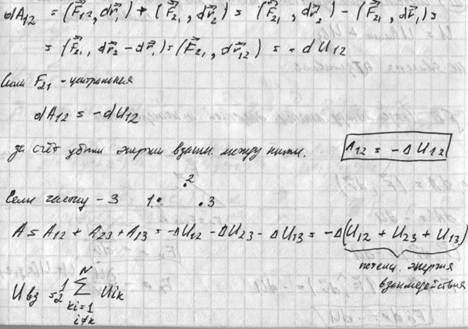 dA₁₂ = (F⃗₁₂, dr⃗₁) + (F⃗₂₁, dr⃗₂) = (F⃗₂₁, dr⃗₂) - (F⃗₂₁, dr⃗₁) =
= (F⃗₂₁, dr⃗₂ - dr⃗₁) = (F⃗₂₁, dr⃗₁₂) = - dU₁₂
Если F₂₁ - центральная
dA₁₂ = - dU₁₂
за счёт убыли энергии взаим. между ними.
A₁₂ = - ΔU₁₂
Если частиц - 3 1. .2 .3
A = A₁₂ + A₂₃ + A₁₃ = -ΔU₁₂ - ΔU₂₃ - ΔU₁₃ = -Δ(U₁₂ + U₂₃ + U₁₃)
потенц. энергия
взаимодействия
Uвз = 1/2 ∑ Uik
N
ki=1
i≠k